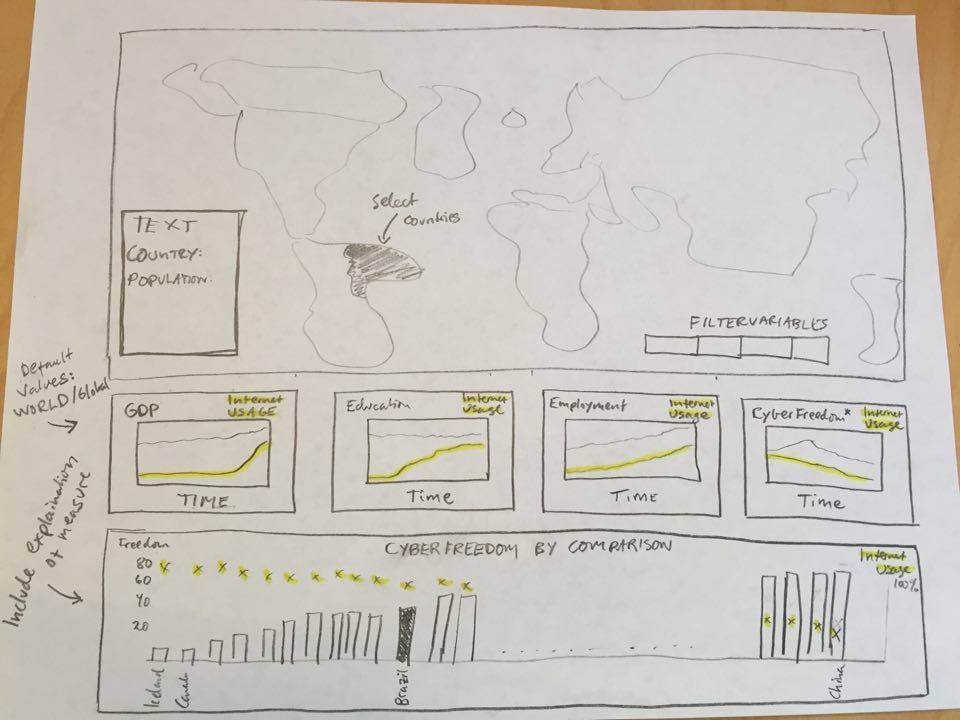 Select
countries
TEXT
COUNTRY:
POPULATION:
FILTERVARIABLES
Default
Values:
WORLD/Global
GDP
Internet
USAGE
TIME
Education
Internet
Usage
Time
Employment
Internet
Usage
TIME
CyberFreedom*
Internet
Usage
Time
Include explaination
of measure
Freedom
CYBERFREEDOM BY COMPARISON
Internet
Usage
100%
80
60
40
20
Iceland
Canada
Brazil
China